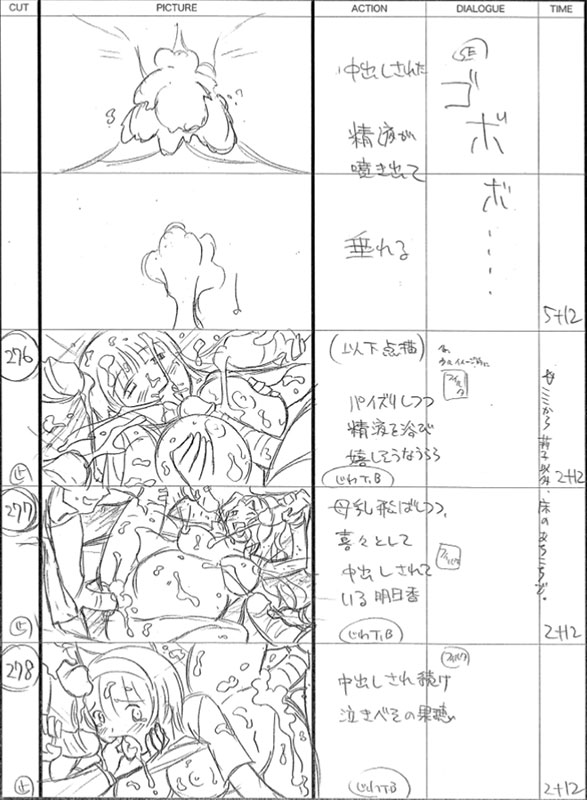 CUT PICTURE ACTION DIALOGUE TIME
中出しされた
精液が
噴き出て
SE
ゴ
ボ
垂れる
ボ
5+12
276
(以下点描)
パイズリしつつ
精液を浴び
嬉しそうなうらら
じわT.B
2+12
277
母乳飛ばしつつ、
喜々として
中出しされて
いる明日香
じわT.B
2+12
278
中出しされ続け
泣きべその
じわT.B
2+12